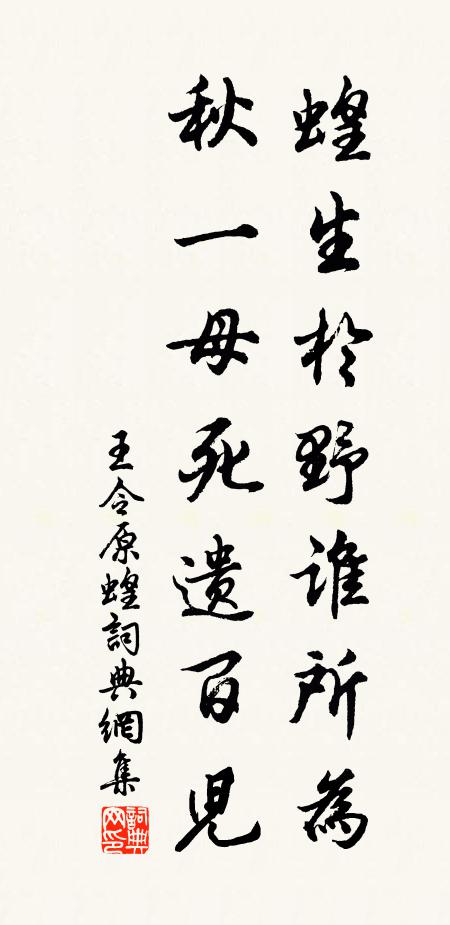 蝗生於野誰所為
秋一母死遺百兒
王令原蝗詞典網集
詞典網印